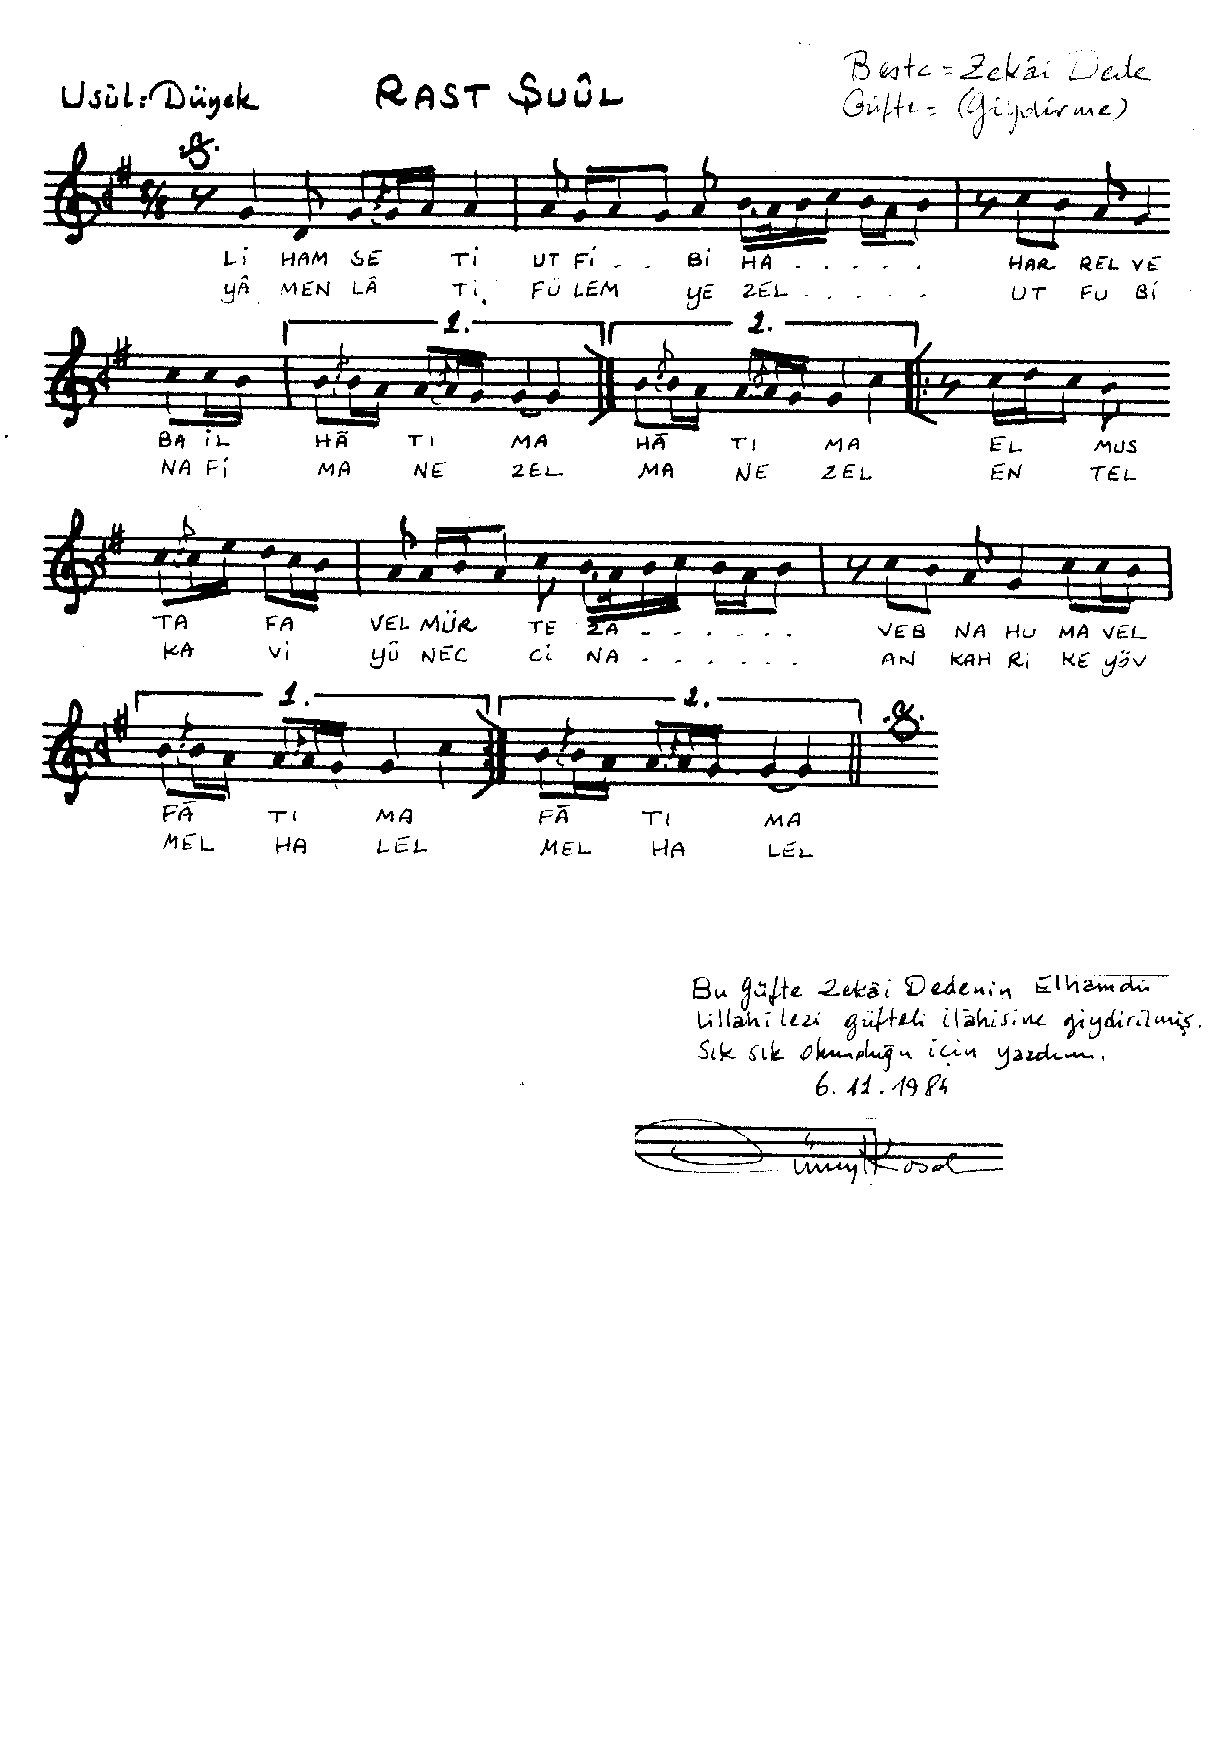 Usûl: Düyek
RAST ŞUÛL
Beste = Zekâi Dede
Güfte = (Giydirme)
8/8
Lİ HAM SE Tİ UT Fİ . . Bİ HA . . . . . HAR REL VE
YÂ MEN LÂ Tİ FÜ LEM YE ZEL . . . . . UT FU Bİ
1. 2.
BA İL HÃ TI MA HÃ TI MA EL MUS
NA Fİ MA NE ZEL MA NE ZEL EN TEL
TA FA VEL MÜR TE ZA . . . . . . VEB NA HU MA VEL
KA Vİ YÛ NEC Cİ NA . . . . . . AN KAH Rİ KE YÖV
1. 2.
FÃ TI MA FÃ TI MA
MEL HA LEL MEL HA LEL
Bu güfte Zekâi Dedenin Elhamdü
lillahilezi güfteli ilâhisine giydirilmiş.
Sık sık okunduğu için yazdım.
6.11.1984
Cüneyt Kosal